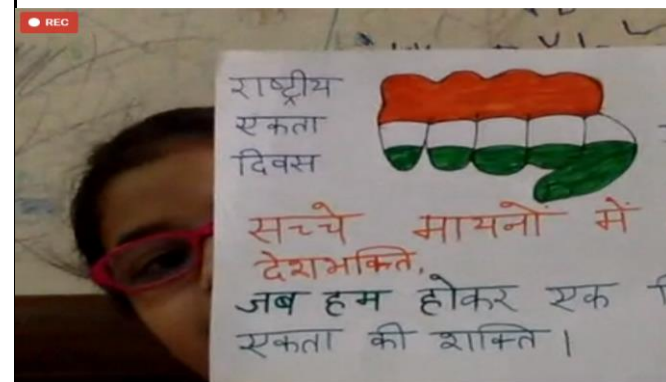 REC
राष्ट्रीय
एकता
दिवस
सच्चे मायनों में
देशभक्ति,
जब हम होकर एक
एकता की शक्ति।